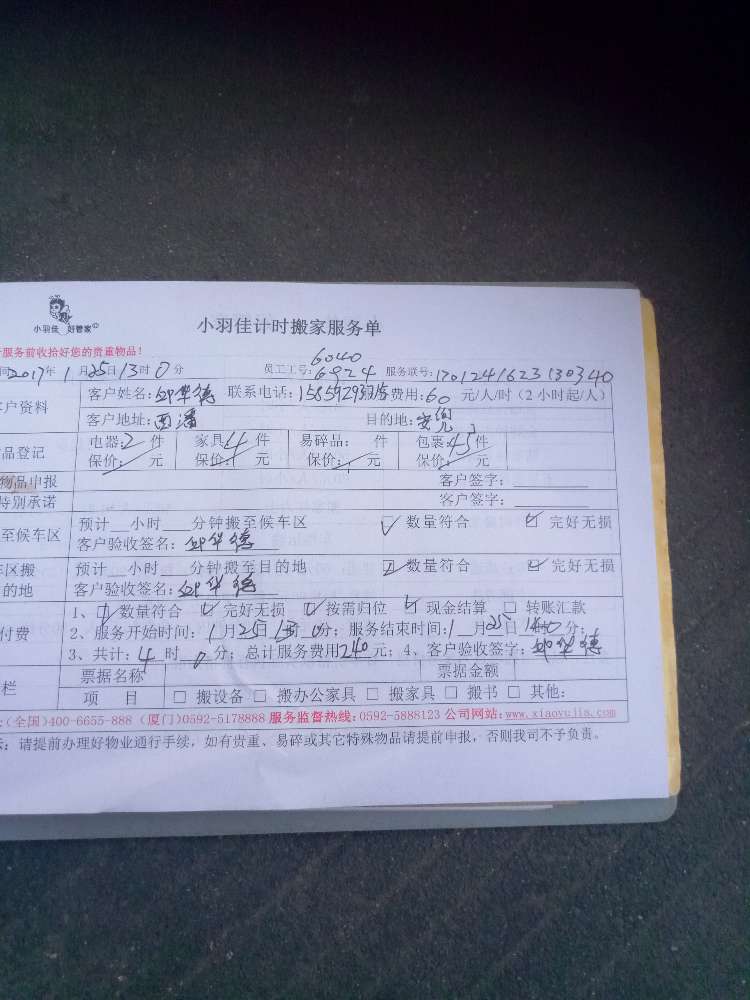 小羽佳 好管家
小羽佳计时搬家服务单
服务前收拾好您的贵重物品！
6040
间2017年1月25日13时0分 员工工号：6924 服务联号：1701241623130340
客户资料 客户姓名：邱华德 联系电话： 费用：60 元/人/时（2小时起/人）
客户地址：西潘 目的地：
品登记 电器：2件 家具4件 易碎品： 件 包裹：45件
保价： 元 保价： 元 保价： 元 保价： 元
物品申报 客户签字：
特别承诺 客户签字：
至候车区 预计 小时 分钟搬至候车区 数量符合 完好无损
客户验收签名：邱华德
车区搬 预计 小时 分钟搬至目的地 数量符合 完好无损
的地 客户验收签名：邱华德
1、 数量符合 完好无损 按需归位 现金结算 □ 转账汇款
付费 2、服务开始时间：1月25日 时 0分；服务结束时间：1月25日 分；
3、共计：4时0分；总计服务费用240元；4、客户验收签字：邱华德
栏 票据名称 票据金额
项 目 □ 搬设备 □ 搬办公家具 □ 搬家具 □ 搬书 □ 其他：
：（全国）400-6655-888（厦门）0592-5178888 服务监督热线：0592-5888123 公司网站：www.xiaoyujia.com
示：请提前办理好物业通行手续，如有贵重、易碎或其它特殊物品请提前申报，否则我司不予负责。